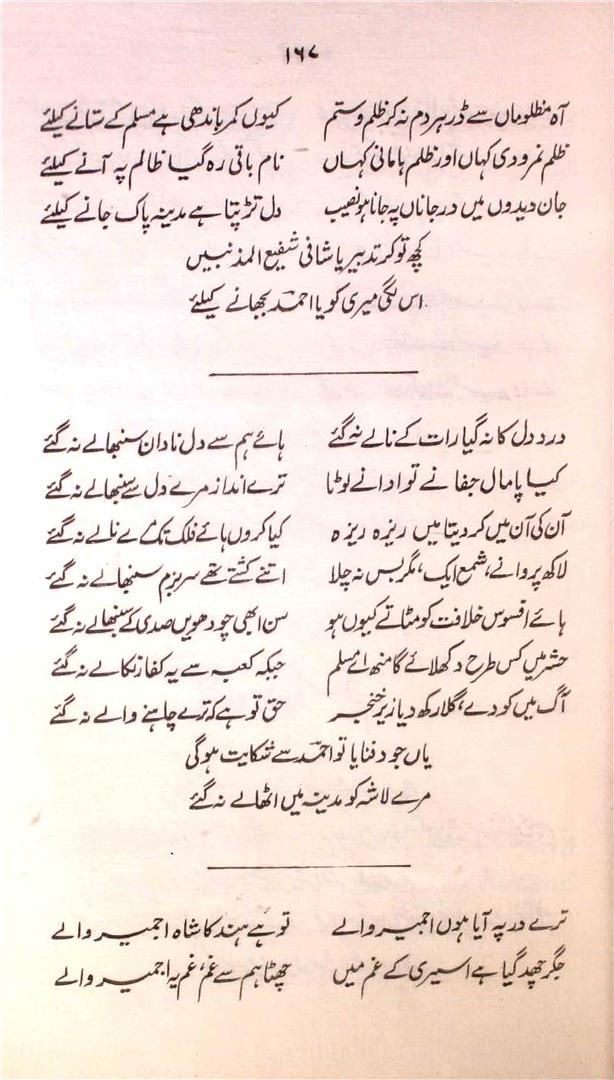 ۱۶۷
آہ مظلوماں سے ڈر ہردم نہ کر ظلم و ستم کیوں کمر باندھی ہے مسلم کے ستانے کیلئے
ظلم نمرودی کہاں اور ظلم ہامانی کہاں نام باقی رہ گیا ظالم پہ آنے کیلئے
جان دیدوں میں در جاناں پہ جانا ہو نصیب دل تڑپتا ہے مدینہ پاک جانے کیلئے
کچھ تو کر تدبیر یا شافی شفیع المذنبیں
اس لگی میری کو یا احمد بجھانے کیلئے
درد دل کا نہ گیا رات کے نالے نہ گئے ہائے ہم سے دل نادان سنبھالے نہ گئے
کیا پامال جفا نے تو ادا نے لوٹا ترے انداز مرے دل سے سنبھالے نہ گئے
آن کی آن میں کر دیتا میں ریزہ ریزہ کیا کروں ہائے فلک تک مے نالے نہ گئے
لاکھ پروانے، شمع ایک، مگر بس نہ چلا اتنے کشتے تھے سر بزم سنبھالے نہ گئے
ہائے افسوس خلافت کو مٹاتے کیوں ہو سن ابھی چودھویں صدی کے سنبھالے نہ گئے
حشر میں کس طرح دکھلائے گا منھ اے مسلم جبکہ کعبہ سے یہ کفار نکالے نہ گئے
آگ میں کودے، گلا رکھ دیا زیر خنجر حق تو ہے کہ ترے چاہنے والے نہ گئے
یاں جو دفنایا تو احمدؐ سے شکایت ہوگی
مرے لاشہ کو مدینہ میں اٹھالے نہ گئے
ترے در پہ آیا ہوں اجمیر والے تو ہے ہند کا شاہ اجمیر والے
جگر چھد گیا ہے اسیری کے غم میں چھٹا ہم سے غم، غم یہ اجمیر والے